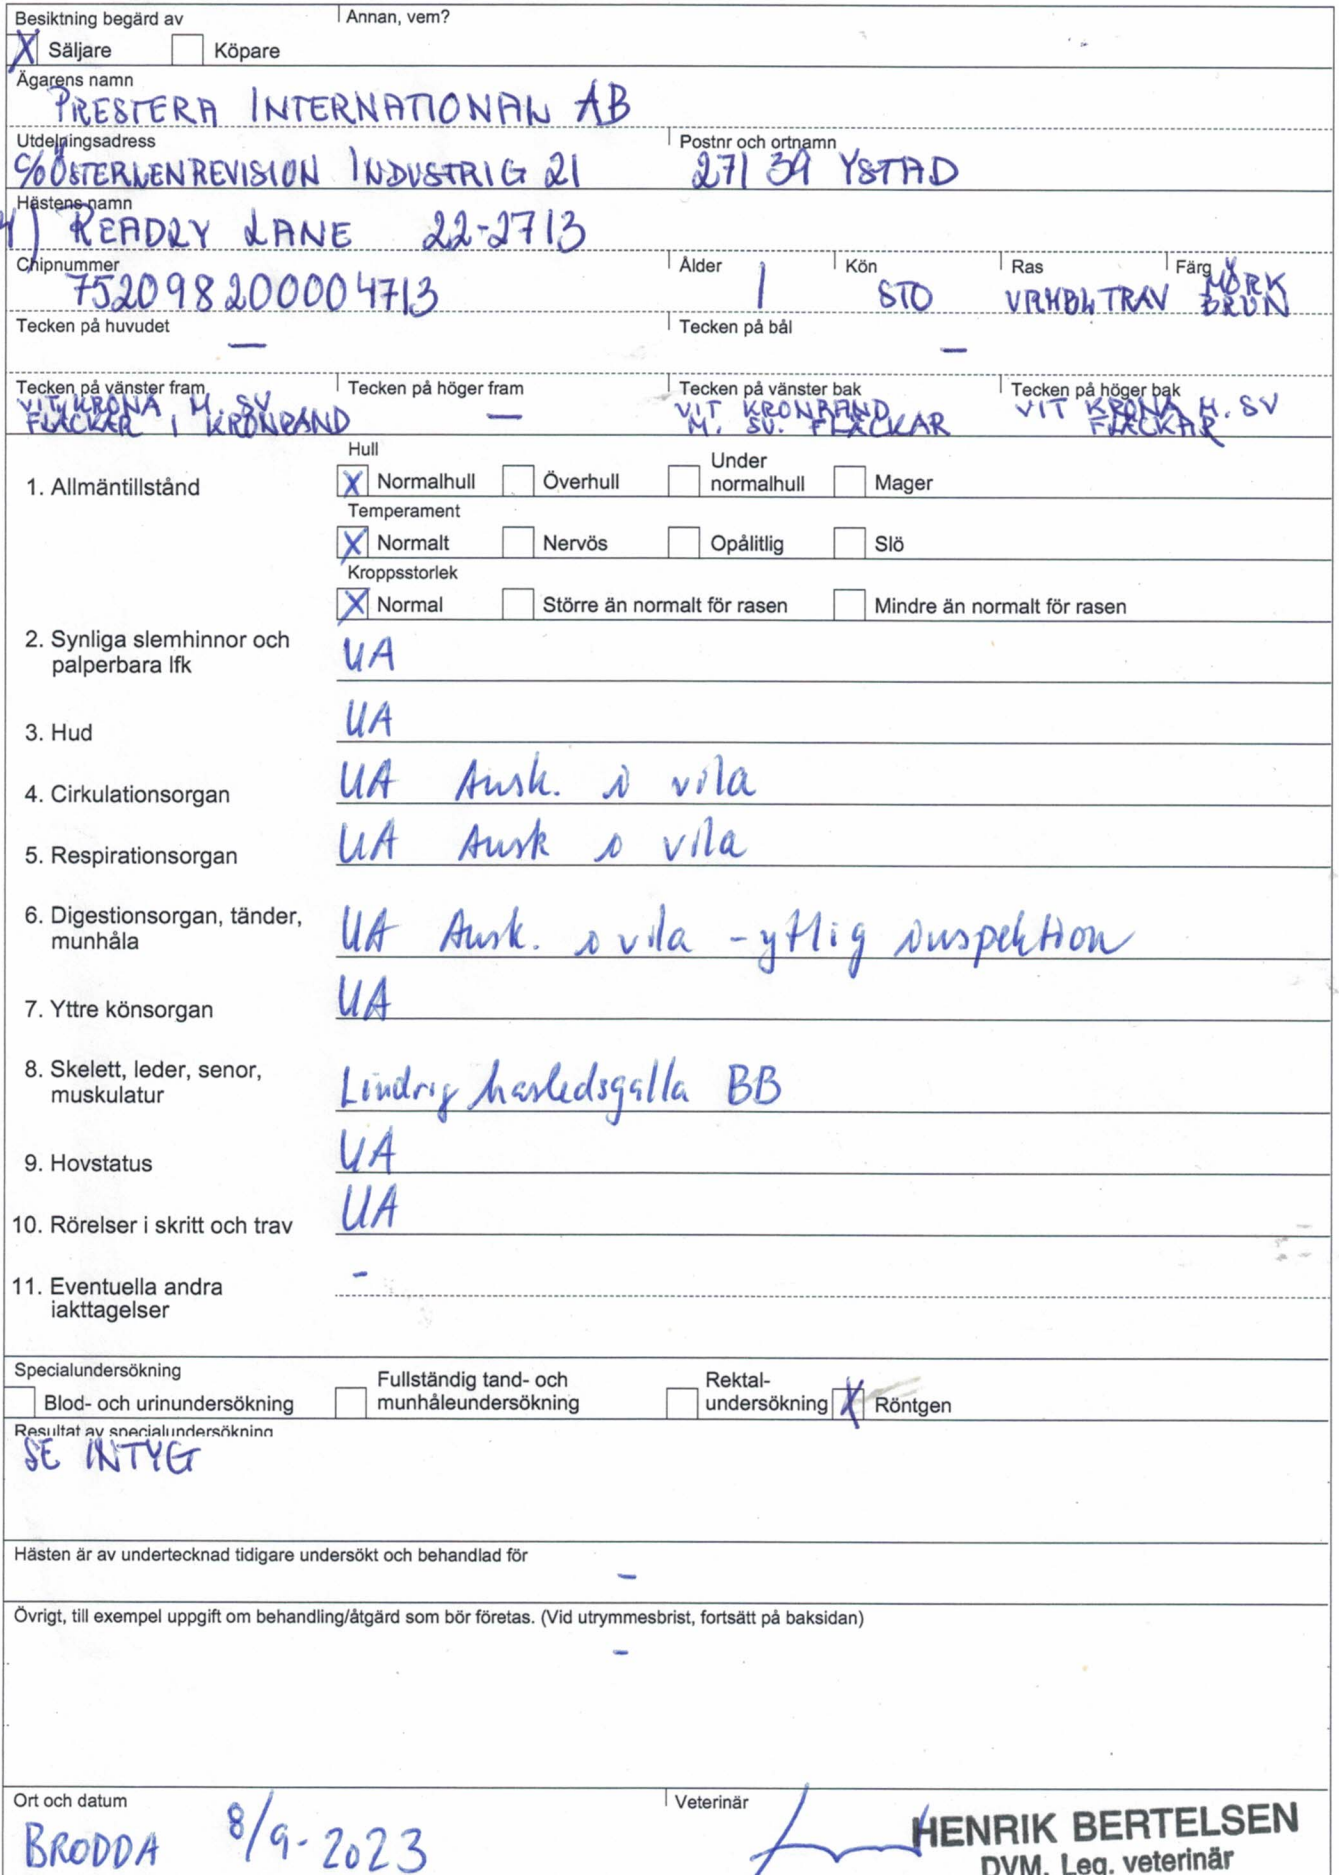 Besiktning begärd av
Annan, vem?
X Säljare
Köpare
Ägarens namn
PRESTERA INTERNATIONAL AB
Utdelningsadress
Postnr och ortnamn
C/O ÖSTERLENREVISION INDUSTRIG 21
271 39 YSTAD
Hästens namn
READLY LANE 22-2713
Chipnummer
Ålder
Kön
Ras
Färg
752098200004713
1
STO
VRMBL TRAV
MÖRK
BRUN
Tecken på huvudet
Tecken på bål
—
—
Tecken på vänster fram
Tecken på höger fram
Tecken på vänster bak
Tecken på höger bak
VIT KRONA M. SV
FLÄCKAR I KRONRAND
—
VIT KRONRAND
M. SV. FLÄCKAR
VIT KRONA M. SV
FLÄCKAR
1. Allmäntillstånd
Hull
X Normalhull
Överhull
Under
normalhull
Mager
Temperament
X Normalt
Nervös
Opålitlig
Slö
Kroppsstorlek
X Normal
Större än normalt för rasen
Mindre än normalt för rasen
2. Synliga slemhinnor och
palperbara lfk
UA
3. Hud
UA
4. Cirkulationsorgan
UA Ausk. i vila
5. Respirationsorgan
UA Ausk i vila
6. Digestionsorgan, tänder,
munhåla
UA Ausk. i vila - ytlig inspektion
7. Yttre könsorgan
UA
8. Skelett, leder, senor,
muskulatur
Lindrig hasledsgalla BB
9. Hovstatus
UA
10. Rörelser i skritt och trav
UA
11. Eventuella andra
iakttagelser
-
Specialundersökning
Blod- och urinundersökning
Fullständig tand- och
munhåleundersökning
Rektal-
undersökning
X Röntgen
Resultat av specialundersökning
SE INTYG
Hästen är av undertecknad tidigare undersökt och behandlad för
-
Övrigt, till exempel uppgift om behandling/åtgärd som bör företas. (Vid utrymmesbrist, fortsätt på baksidan)
-
Ort och datum
Veterinär
BRODDA 8/9-2023
HENRIK BERTELSEN
DVM, Leg. veterinär